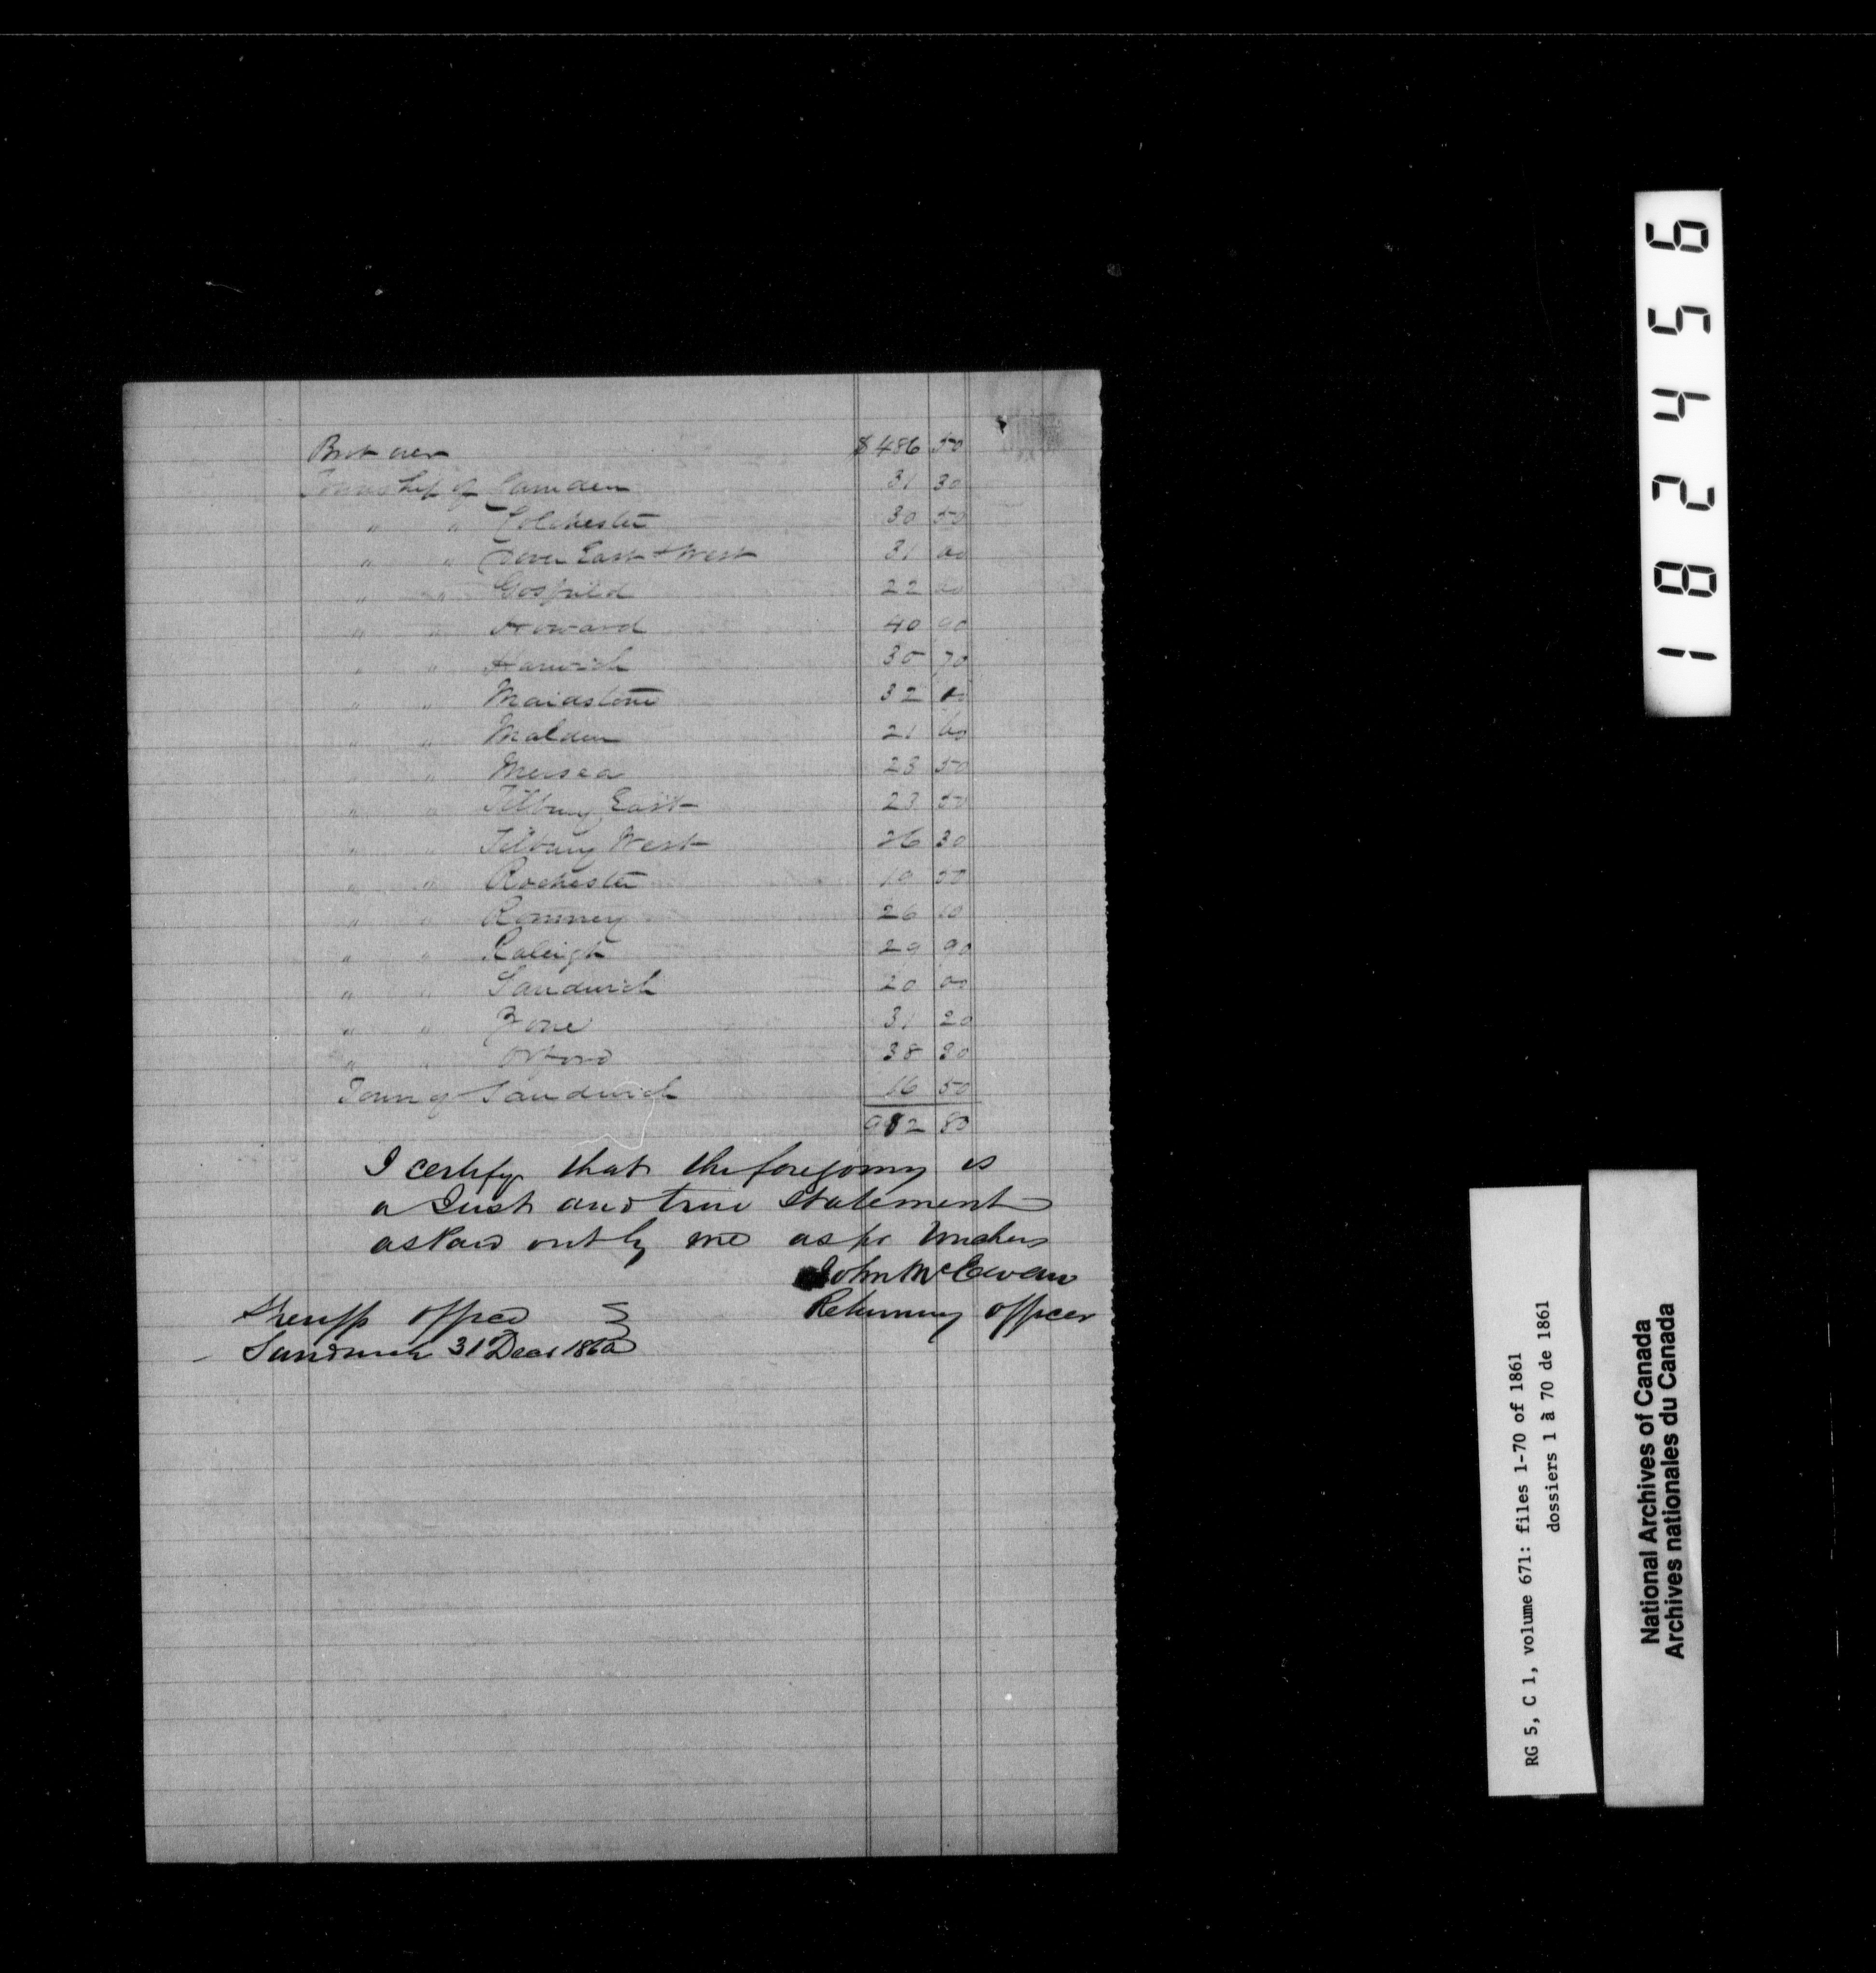 Brot over $ 486 50
Township of Camden 31 30
" " Colchester 30 50
" " Dover East & West 31 00
" " Gosfield 22 00
" " Howard 40 90
" " Harwich 35 70
" " Maidstone 32 00
" " Malden 21 60
" " Mersea 23 50
" " Tilbury East 23 50
" " Tilbury West 26 30
" " Rochester 19 50
" " Romney 26 10
" " Raleigh 29 90
" " Sandwich 20 00
" " Zone 31 20
" " Orford 38 30
Town of Sandwich 16 50
982 80
I certify that the foregoing is
a Just and true Statement
as Paid out by me as pr Vouchers
John McEwan
Returning officer
Sheriffs Office
Sandwich 31 Decr 1860
182456
RG 5, C 1, volume 671: files 1-70 of 1861
dossiers 1 à 70 de 1861
National Archives of Canada
Archives nationales du Canada